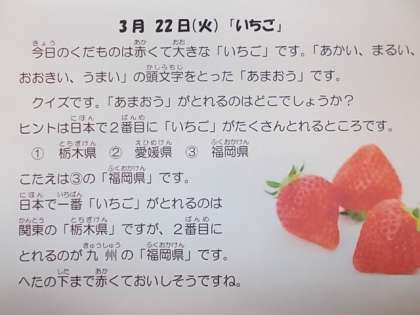 3月 22日(火)「いちご」
今日のくだものは赤くて大きな「いちご」です。「あかい、まるい、
おおきい、うまい」の頭文字をとった「あまおう」です。
クイズです。「あまおう」がとれるのはどこでしょうか？
ヒントは日本で２番目に「いちご」がたくさんとれるところです。
① 栃木県 ② 愛媛県 ③ 福岡県
こたえは③の「福岡県」です。
日本で一番「いちご」がとれるのは
関東の「栃木県」ですが、２番目に
とれるのが九州の「福岡県」です。
へたの下まで赤くておいしそうですね。